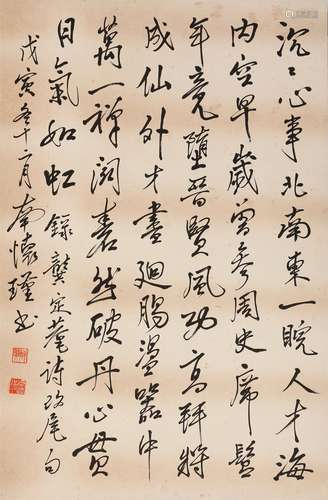 沉々心事北南東一睨人才海
內空早歲曾參周史席鬢
年竟墮晉賢風功高拜將
成仙外才盡迴腸盪器中
萬一禪關砉然破丹心貫
日氣如虹 錄龔定菴詩改尾句
戊寅冬十二月南懷瑾書